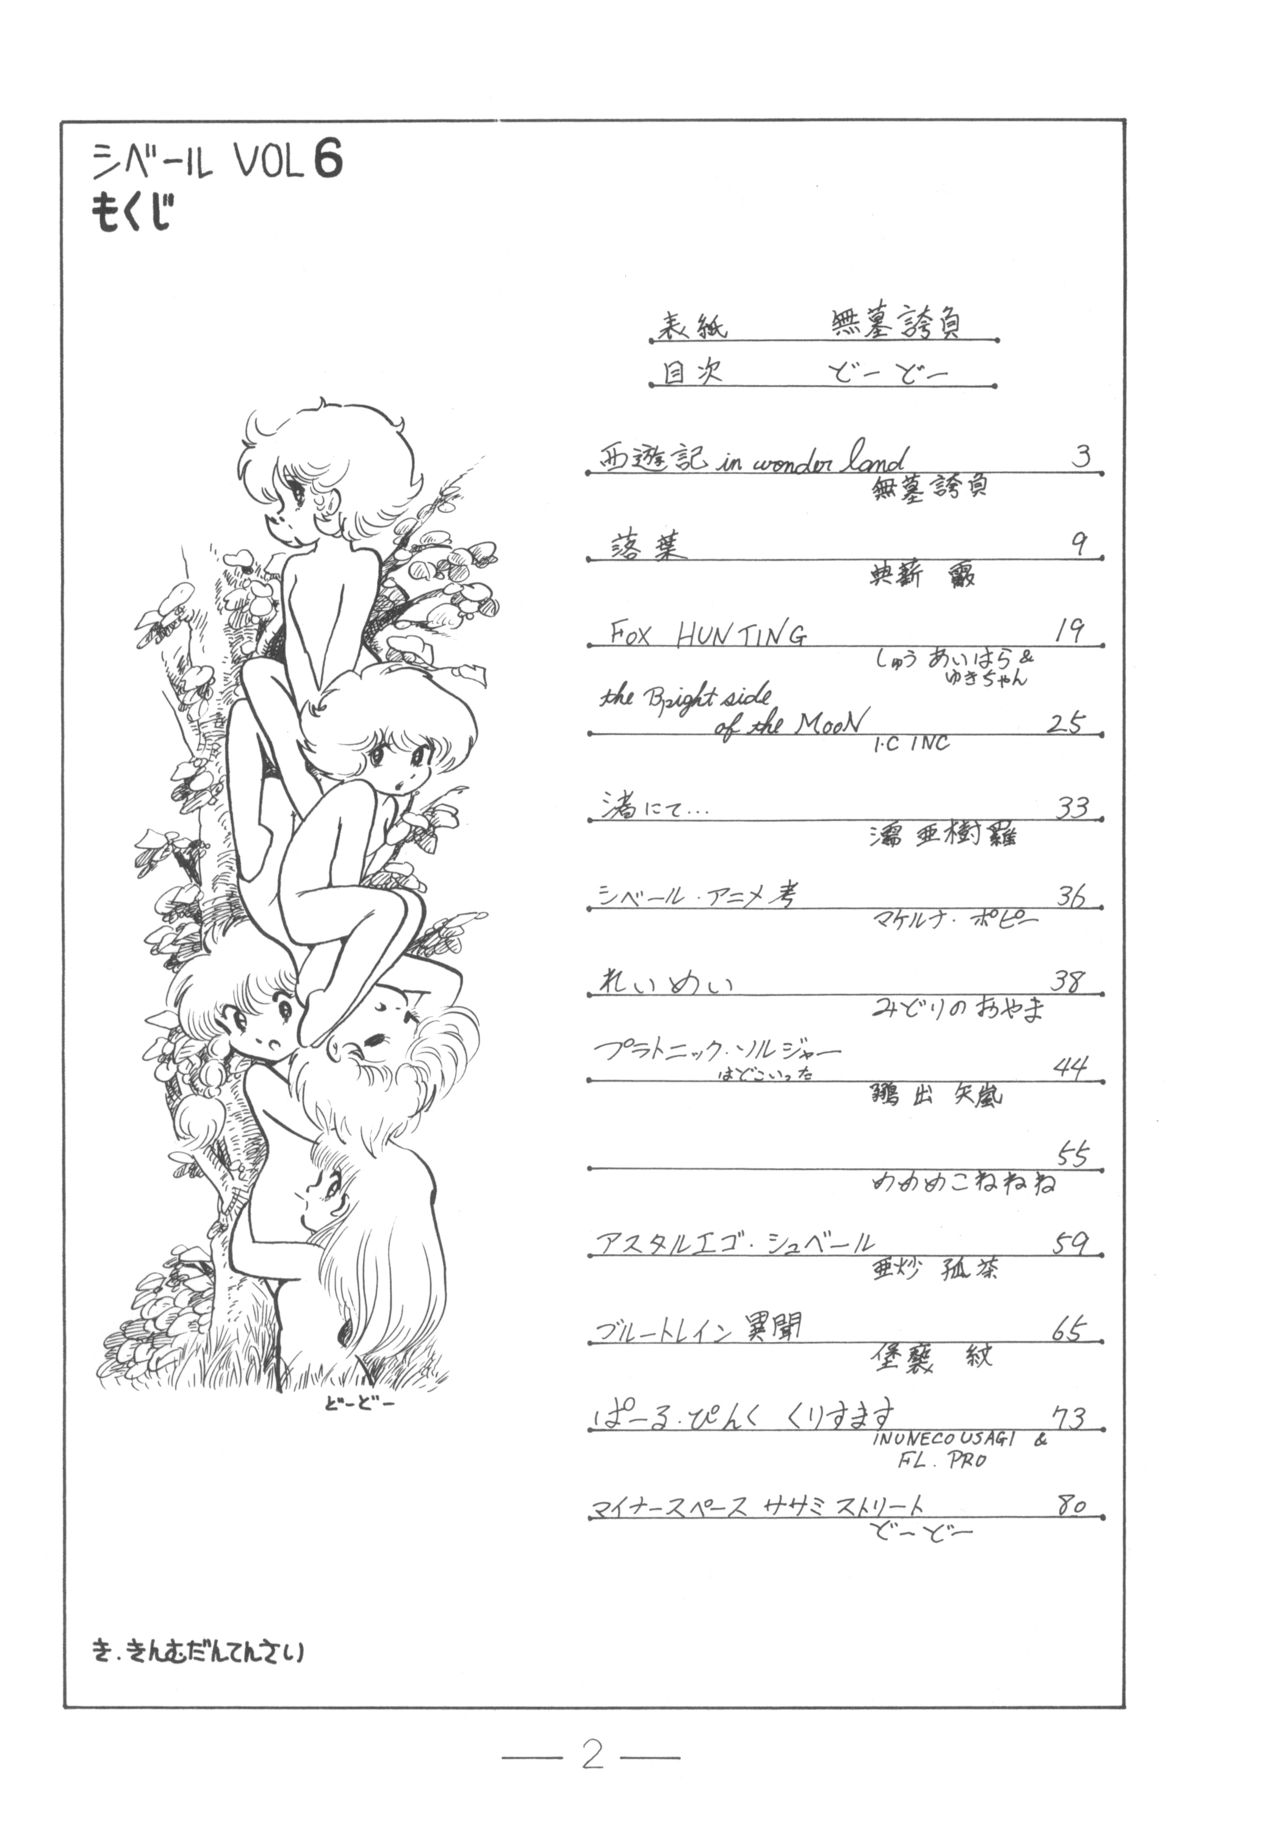 シベール VOL 6
もくじ
表紙 無墓誇負
目次 どーどー
西遊記 in wonder land 3
無墓誇負
落葉 9
典薪 霞
FOX HUNTING 19
しゅう あいはら &
ゆきちゃん
the Bright side
of the MooN 25
I.C INC
渚にて… 33
濡 亜樹羅
シベール・アニメ考 36
マケルナ・ポピー
れいめい 38
みどりの あやま
プラトニック・ソルジャー
はどこいった 44
出 矢嵐
55
めめめこねねね
アスタルエゴ・シュベール 59
亜炒 孤茶
ブルートレイン異聞 65
紋
ぱーる・ぴんく くりすます 73
INUNECOUSAGI &
FL. PRO
マイナースペース ササミストリート 80
どーどー
どーどー
き.きんむだんてんさい
— 2 —